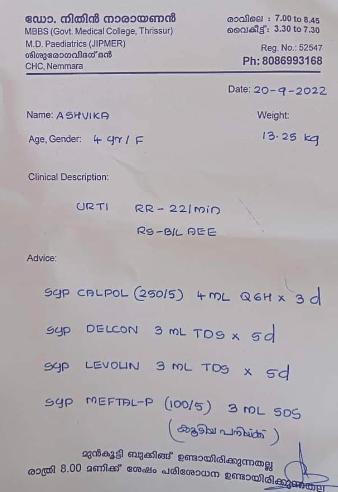 ഡോ. നിതിൻ നാരായണൻ
MBBS (Govt. Medical College, Thrissur)
M.D. Paediatrics (JIPMER)
ശിശുരോഗവിദഗ്ദ്ധൻ
CHC, Nemmara
രാവിലെ : 7.00 to 8.45
വൈകീട്ട് : 3.30 to 7.30
Reg. No.: 52547
Ph: 8086993168
Date: 20-9-2022
Name: ASHVIKA
Weight:
Age, Gender: 4 yr / F
13.25 kg
Clinical Description:
URTI RR - 22/min
RS - B/L AEE
Advice:
syp CALPOL (250/5) 4 ML Q6H x 3 d
syp DELCON 3 ML TDS x 5d
syp LEVOLIN 3 ML TDS x 5d
syp MEFTAL-P (100/5) 3 ML SOS
(കൂടിയ പനിക്ക്)
മുൻകൂട്ടി ബുക്കിങ്ങ് ഉണ്ടായിരിക്കുന്നതല്ല
രാത്രി 8.00 മണിക്ക് ശേഷം പരിശോധന ഉണ്ടായിരിക്കുന്നതല്ല